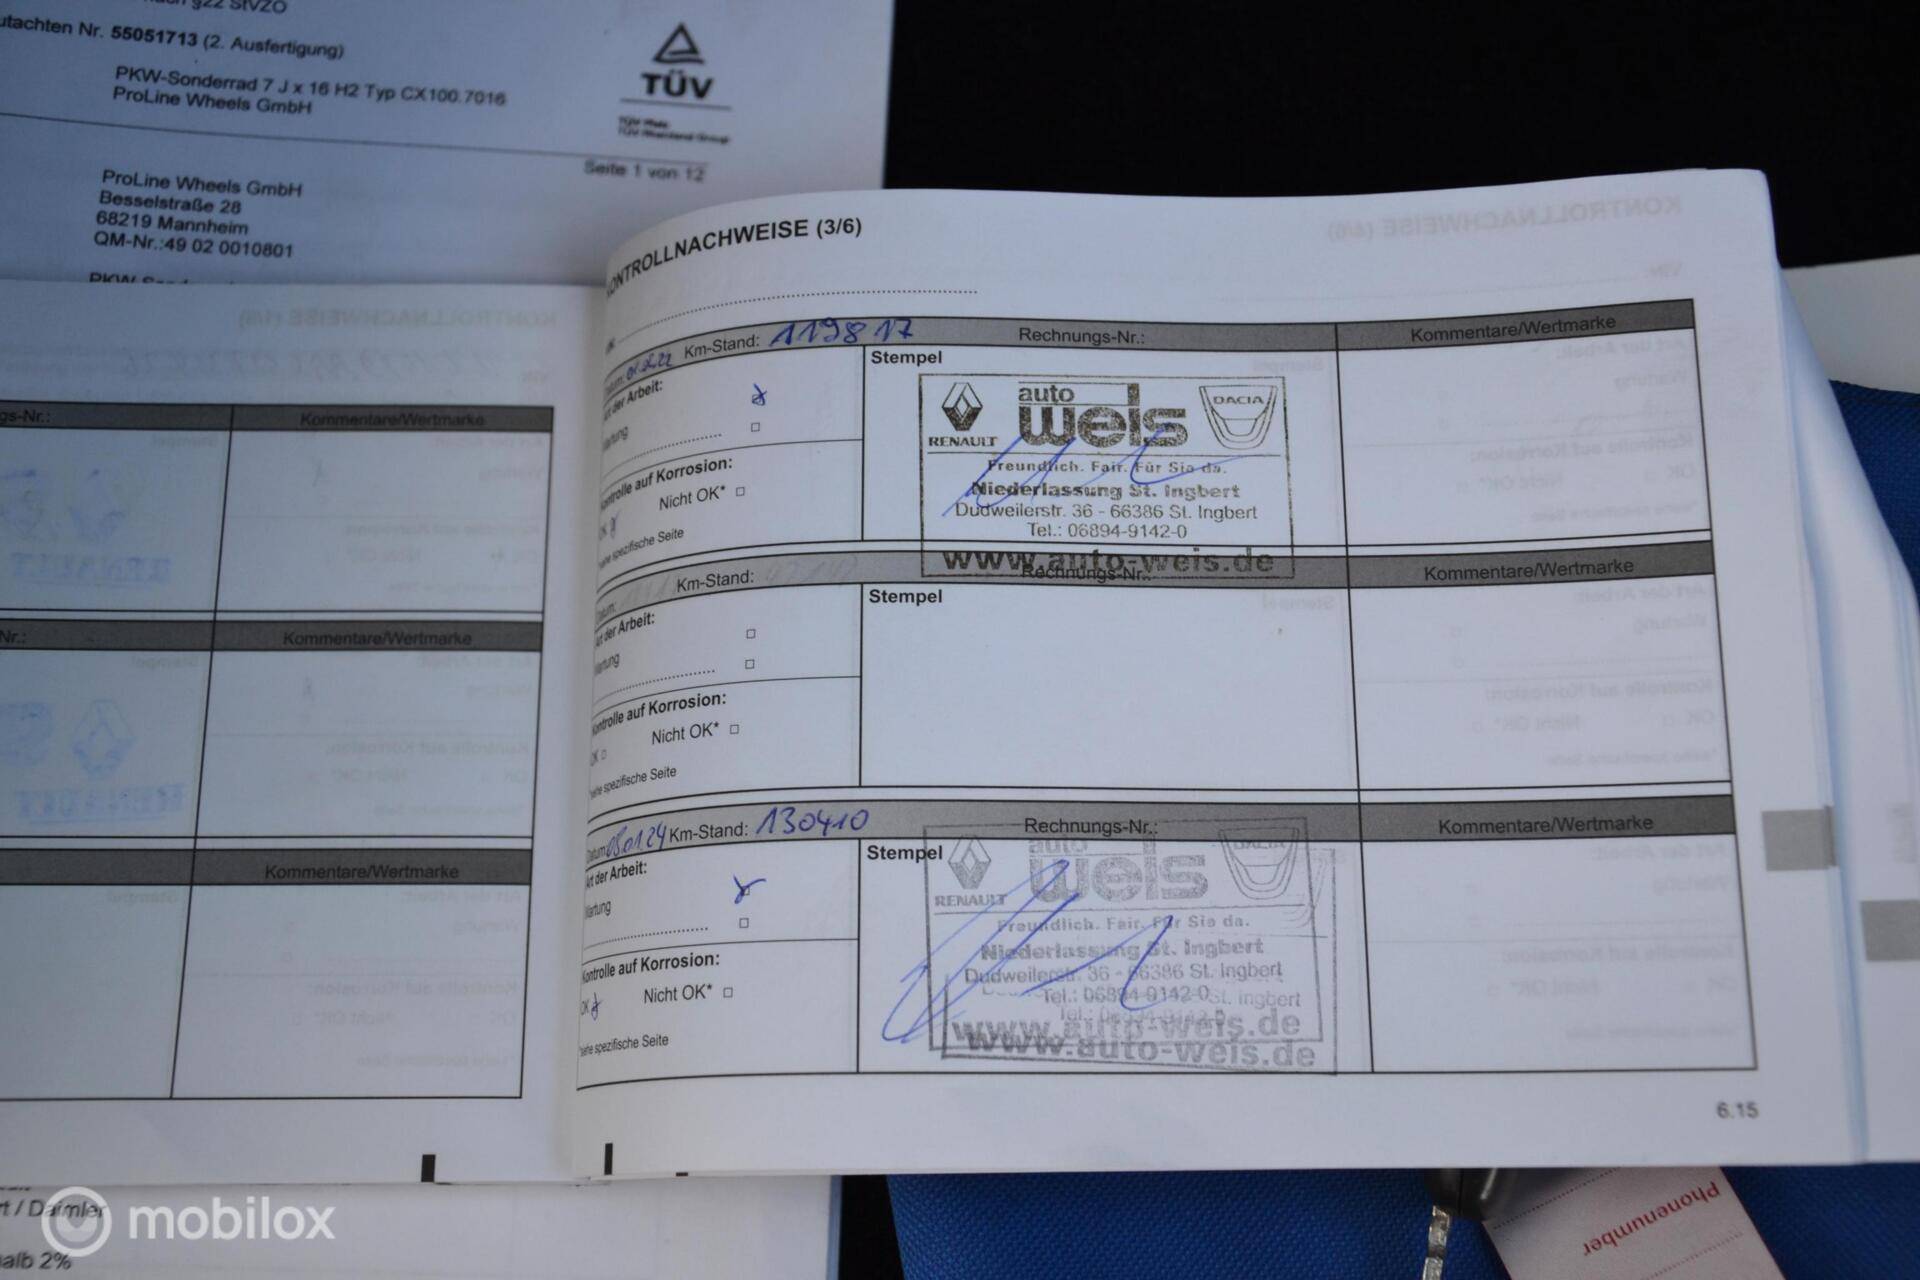 nach §22 StVZO
utachten Nr. 55051713 (2. Ausfertigung)
PKW-Sonderrad 7 J x 16 H2 Typ CX100.7016
ProLine Wheels GmbH
TÜV
TÜV Rheinland Group
Seite 1 von 12
ProLine Wheels GmbH
Besselstraße 28
68219 Mannheim
QM-Nr.:49 02 0010801
gs-Nr.:
Kommentare/Wertmarke
RENAULT
Nr.:
Kommentare/Wertmarke
RENAULT
Kommentare/Wertmarke
KONTROLLNACHWEISE (3/6)
Datum: Km-Stand: 119817 Rechnungs-Nr.: Kommentare/Wertmarke
Art der Arbeit:
Wartung
Kontrolle auf Korrosion:
OK Nicht OK*
*siehe spezifische Seite
Stempel
RENAULT
auto
weis
DACIA
Freundlich. Fair. Für Sie da.
Niederlassung St. Ingbert
Dudweilerstr. 36 - 66386 St. Ingbert
Tel.: 06894-9142-0
www.auto-weis.de
Datum: Km-Stand: Rechnungs-Nr.: Kommentare/Wertmarke
Art der Arbeit:
Wartung
Kontrolle auf Korrosion:
OK Nicht OK*
*siehe spezifische Seite
Stempel
Datum: 080124 Km-Stand: 130410 Rechnungs-Nr.: Kommentare/Wertmarke
Art der Arbeit:
Wartung
Kontrolle auf Korrosion:
OK Nicht OK*
*siehe spezifische Seite
Stempel
RENAULT
auto
weis
DACIA
Freundlich. Fair. Für Sie da.
Niederlassung St. Ingbert
Dudweilerstr. 36 - 66386 St. Ingbert
Tel.: 06894-9142-0
www.auto-weis.de
www.auto-weis.de
6.15
rt / Daimler
halb 2%
mobilox
Phonenumber